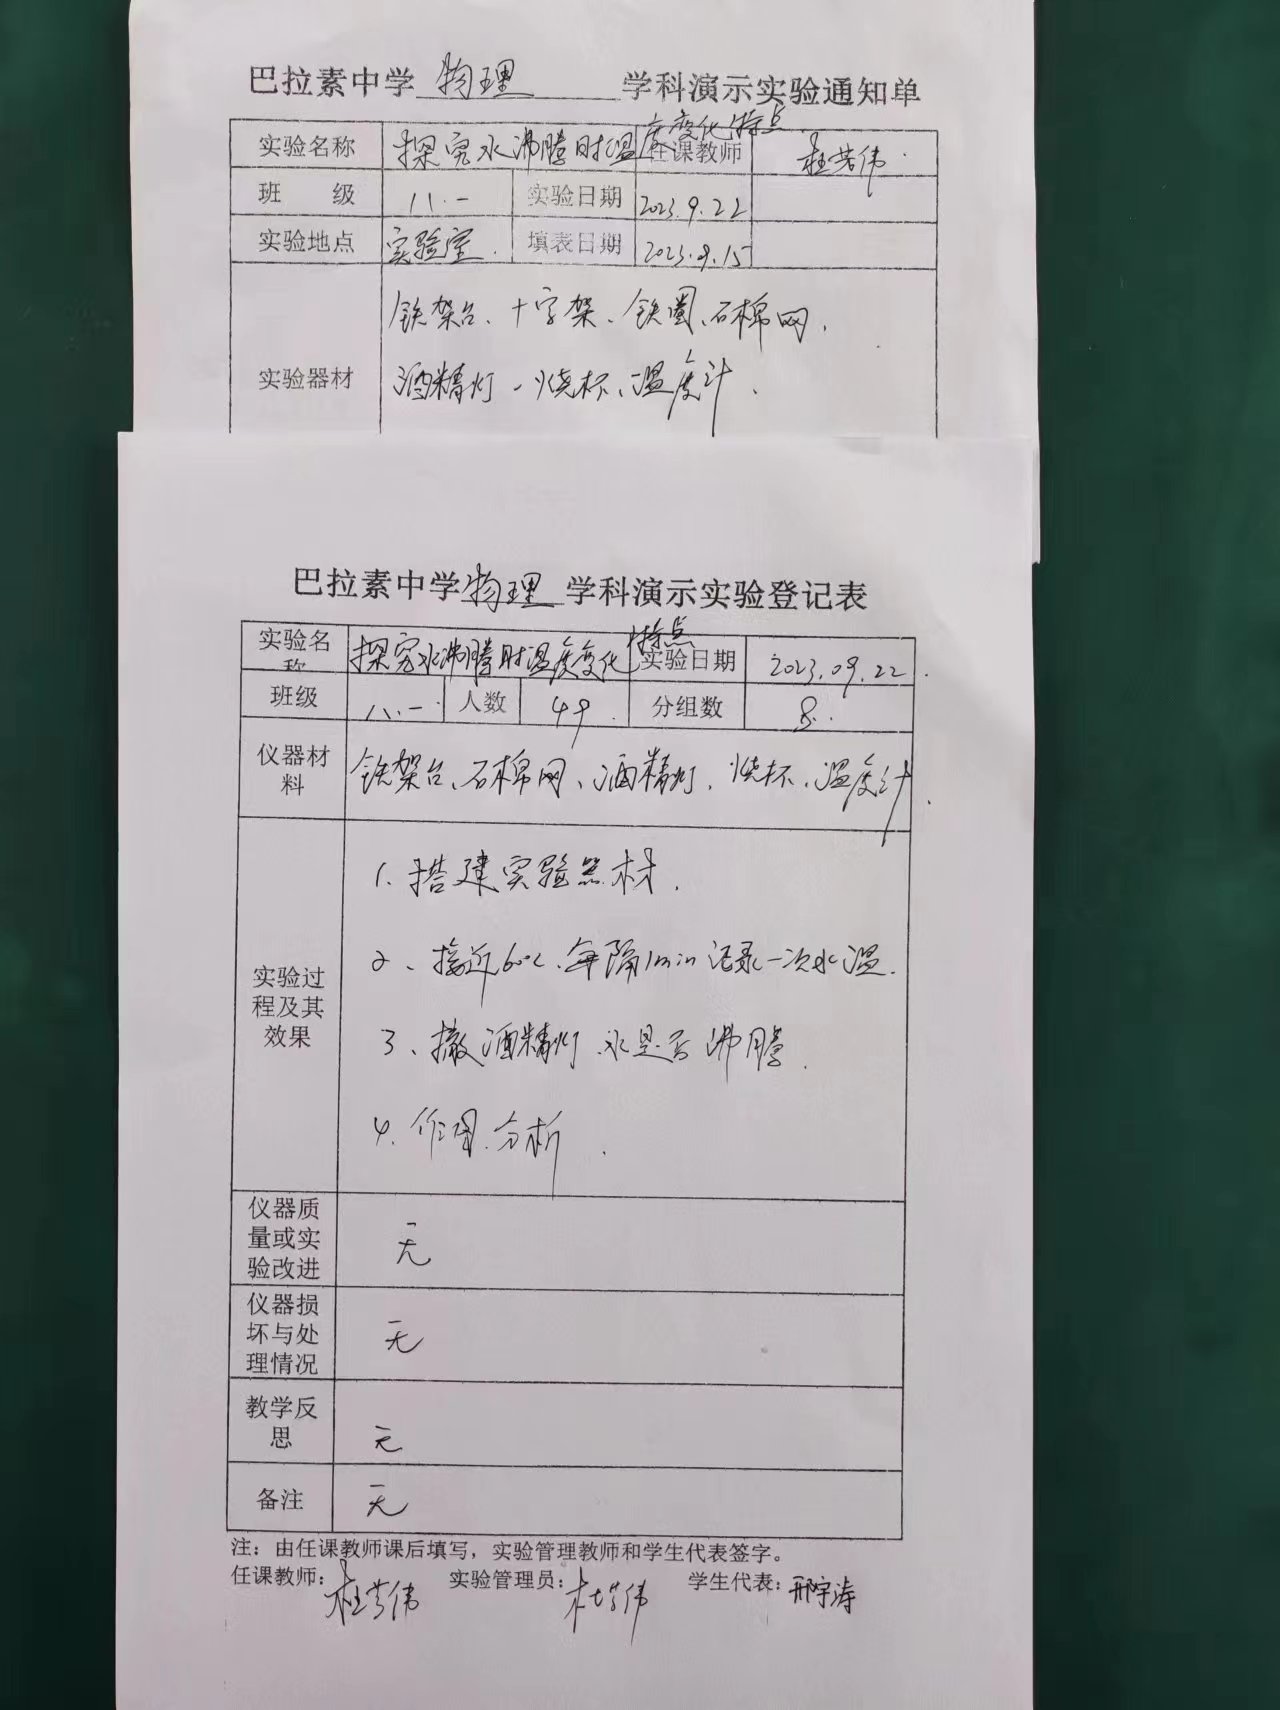 巴拉素中学 物理 学科演示实验通知单
实验名称 探究水沸腾时温度变化特点 任课教师 杜芳伟
班 级 八.一 实验日期 2023.9.22
实验地点 实验室. 填表日期 2023.9.15
实验器材 铁架台、十字架、铁圈、石棉网,
酒精灯、烧杯、温度计.
巴拉素中学物理学科演示实验登记表
实验名称 探究水沸腾时温度变化特点 实验日期 2023.09.22.
班级 八.一 人数 49. 分组数 8.
仪器材料 铁架台、石棉网、酒精灯、烧杯、温度计.
实验过程及其效果
1.搭建实验器材.
2、接近60℃、每隔1min记录一次水温.
3、撤酒精灯 水是否沸腾.
4.作图.分析.
仪器质量或实验改进 无
仪器损坏与处理情况 无
教学反思 无
备注 无
注：由任课教师课后填写，实验管理教师和学生代表签字。
任课教师：杜芳伟 实验管理员：杜芳伟 学生代表：邢宇涛